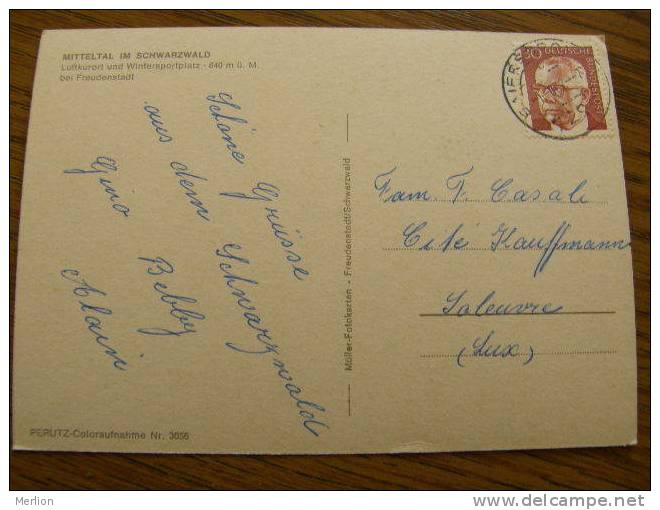 MITTELTAL IM SCHWARZWALD
Luftkurort und Wintersportplatz - 640 m ü. M.
bei Freudenstadt
Schöne Grüsse
aus dem Schwarzwald
Gino Bebby
Alain
PERUTZ-Coloraufnahme Nr. 3056
Möller-Fotokarten - Freudenstadt/Schwarzwald
30 DEUTSCHE
BUNDESPOST
Fam. F. Casali
Cité Kauffmann
Soleuvre
(Lux)
Merlion
www.delcampe.net